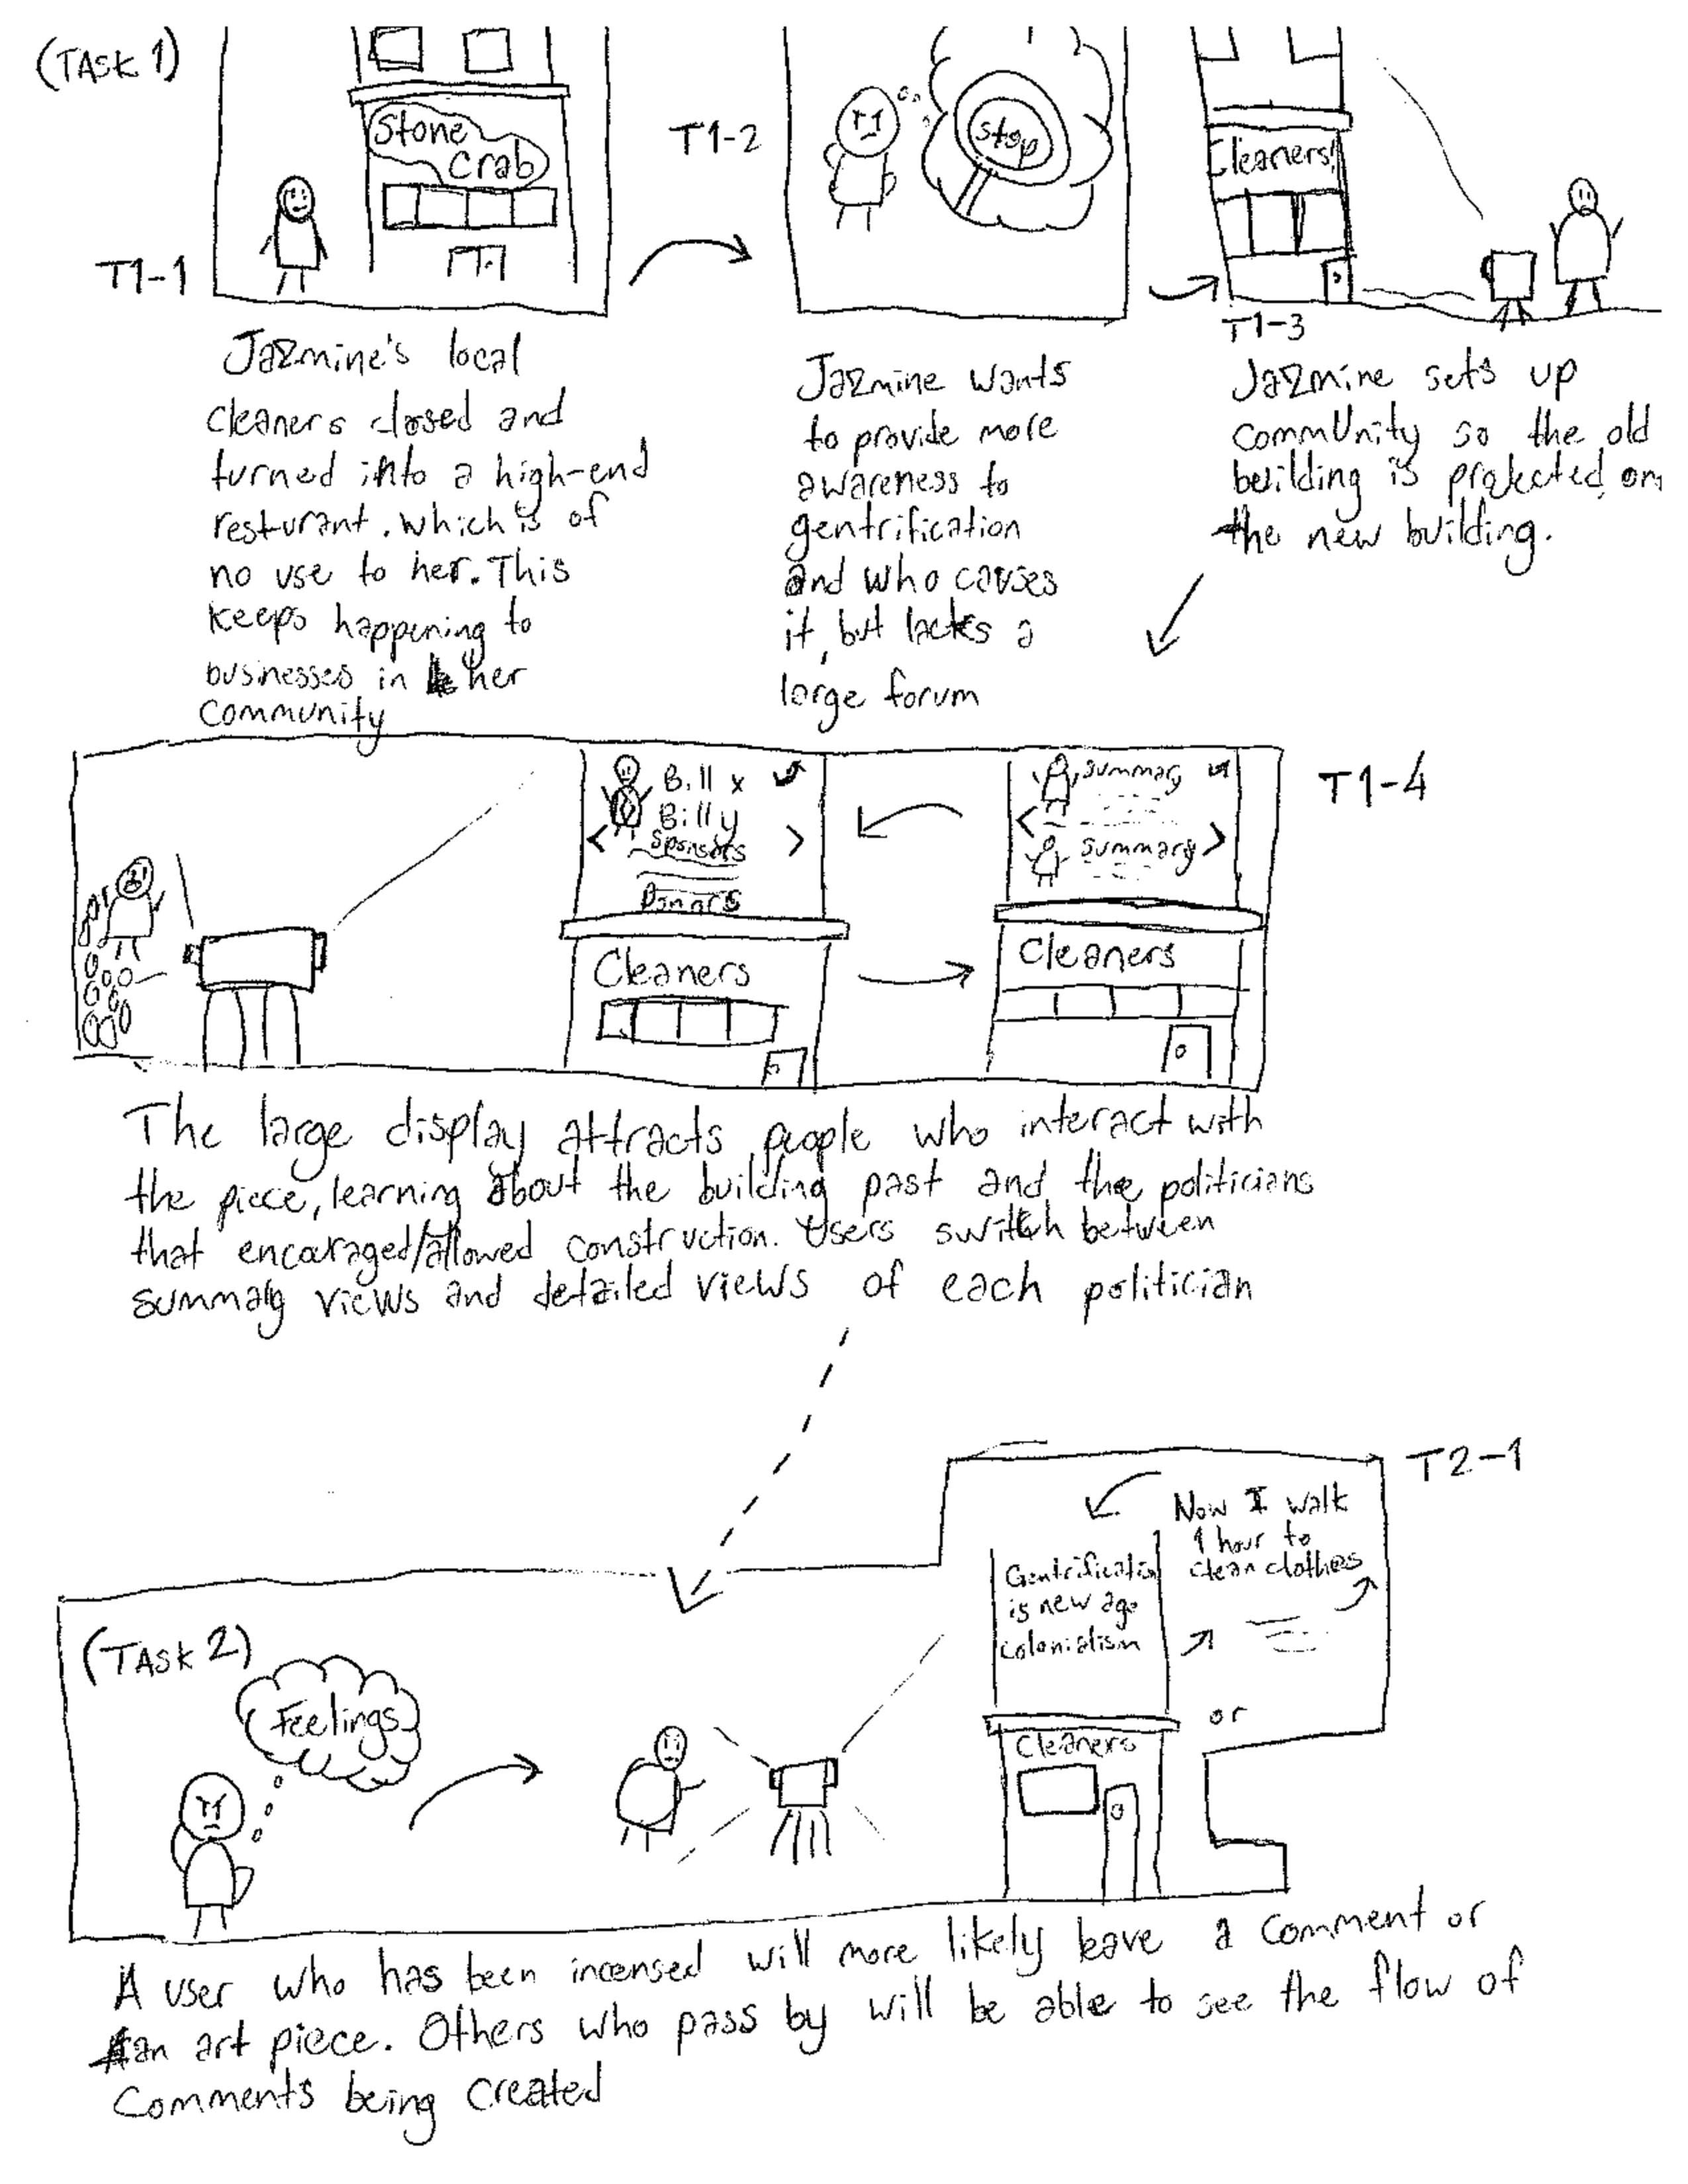 (TASK 1)
Stone
Crab
T1-1
Jazmine's local
cleaners closed and
turned into a high-end
resturant. Which is of
no use to her. This
keeps happening to
businesses in her
community
T1-2
stop
Jazmine wants
to provide more
awareness to
gentrification
and who causes
it, but lacks a
large forum
Cleaners!
T1-3
Jazmine sets up
commUnity so the old
building is projected on
the new building.
T1-4
Bill x
Bill y
Sponsors
Donors
Cleaners
summary
summary
Cleaners
The large display attracts people who interact with
the piece, learning about the building past and the politicians
that encouraged/allowed construction. Users switch between
summary views and detailed views of each politician
T2-1
(TASK 2)
Feelings
Gentrification
is new age
colonialism
Now I walk
1 hour to
clean clothes
or
Cleaners
A user who has been incensed will more likely leave a comment or
an art piece. Others who pass by will be able to see the flow of
comments being created